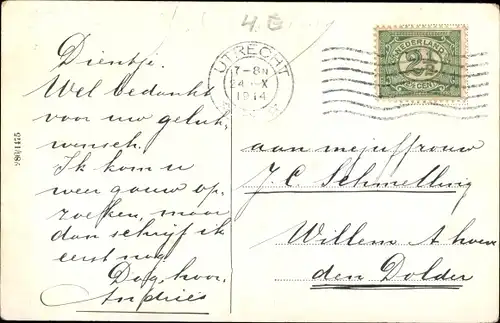 4.E
Dientje.
Wel bedankt
voor uw geluk-
wensch.
Ik kom u
weer gauw op-
zoeken, maar
dan schrijf ik
eerst nog.
Dag, hoor.
Andries
UTRECHT
7-8N
24 X
1914
NEDERLAND
2½
CENT
aan mejuffrouw
J. C. Schmelling
Willem A hoeve
den Dolder